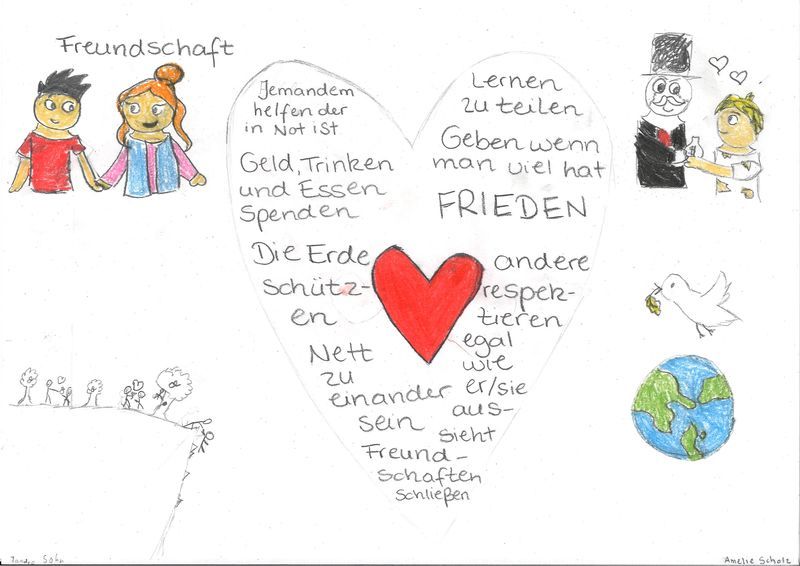 Freundschaft
Jemandem
helfen der
in Not ist
Geld, Trinken
und Essen
Spenden
Die Erde
schütz-
en
Nett
zu
einander
sein
Freund-
schaften
schließen
Lernen
zu teilen
Geben wenn
man viel hat
FRIEDEN
andere
respek-
tieren
egal
wie
er/sie
aus-
sieht
Amelie Scholz